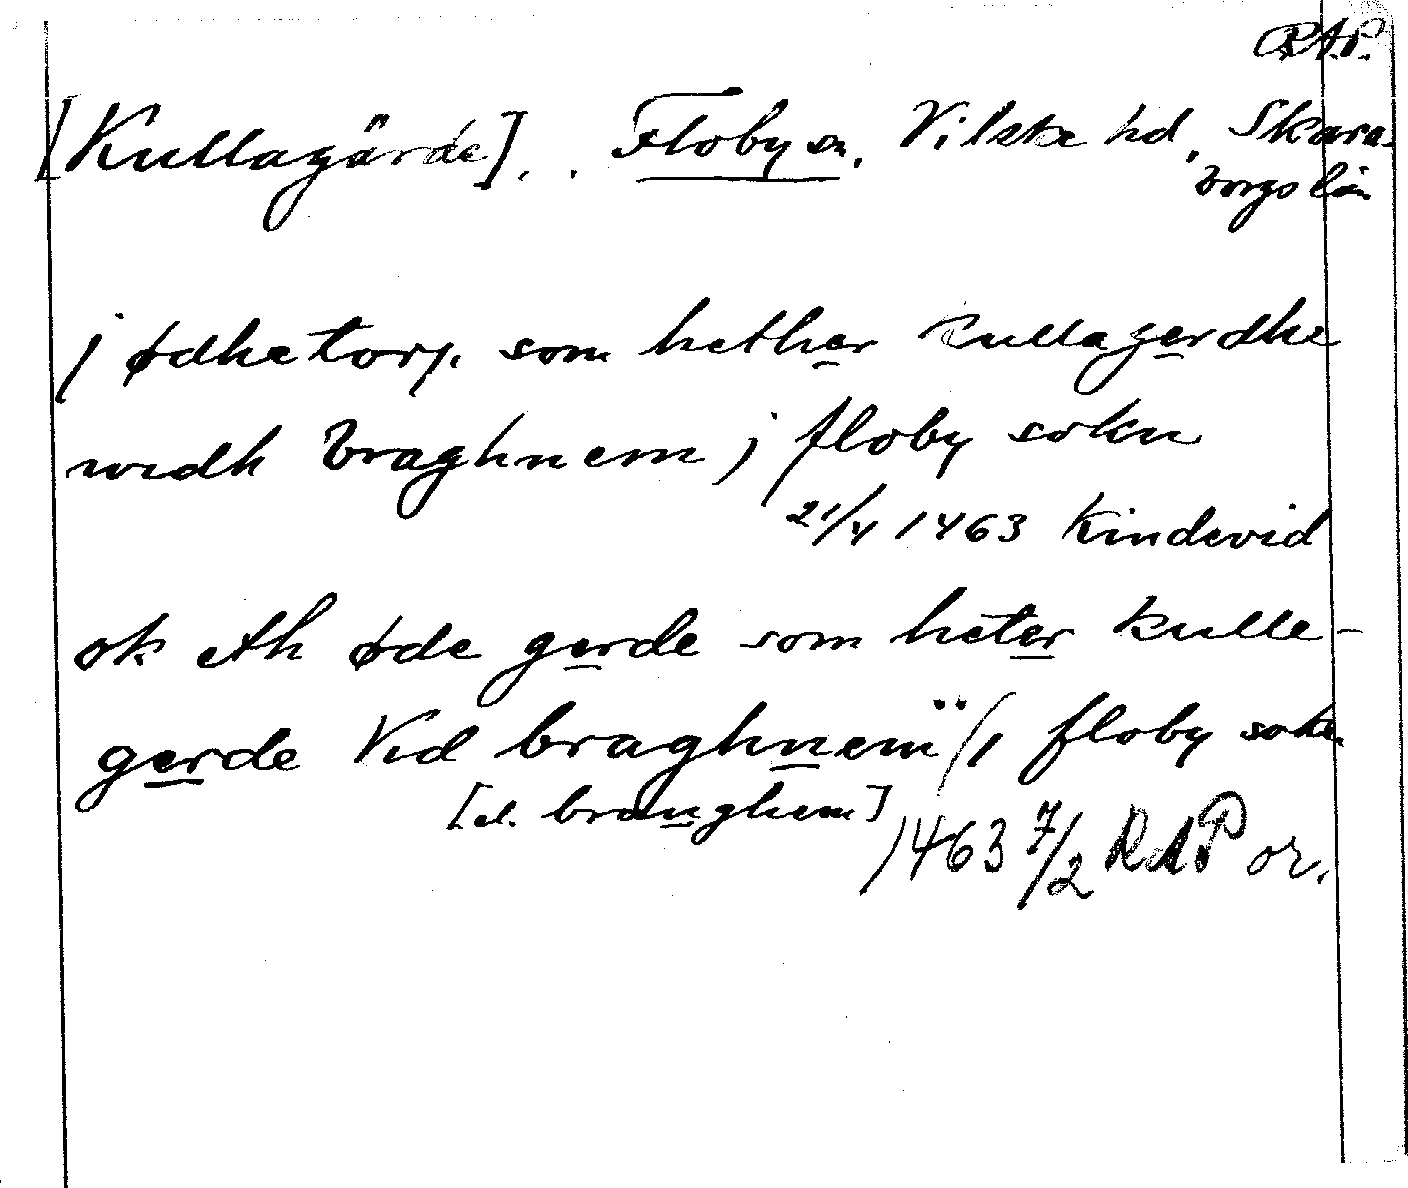 RAP.
[Kullagärde]. . Floby sn. Vilske hd, Skara-
borgs län
j ødhetorp som hether kullagerdhe
widh braghnem j floby sokn
21/4 1463 Kindevid
ok eth øde gerde som heter kulle-
gerde vid braghnem̈ (j floby sokn
[el. branghem]
1463 7/2 RAP or.